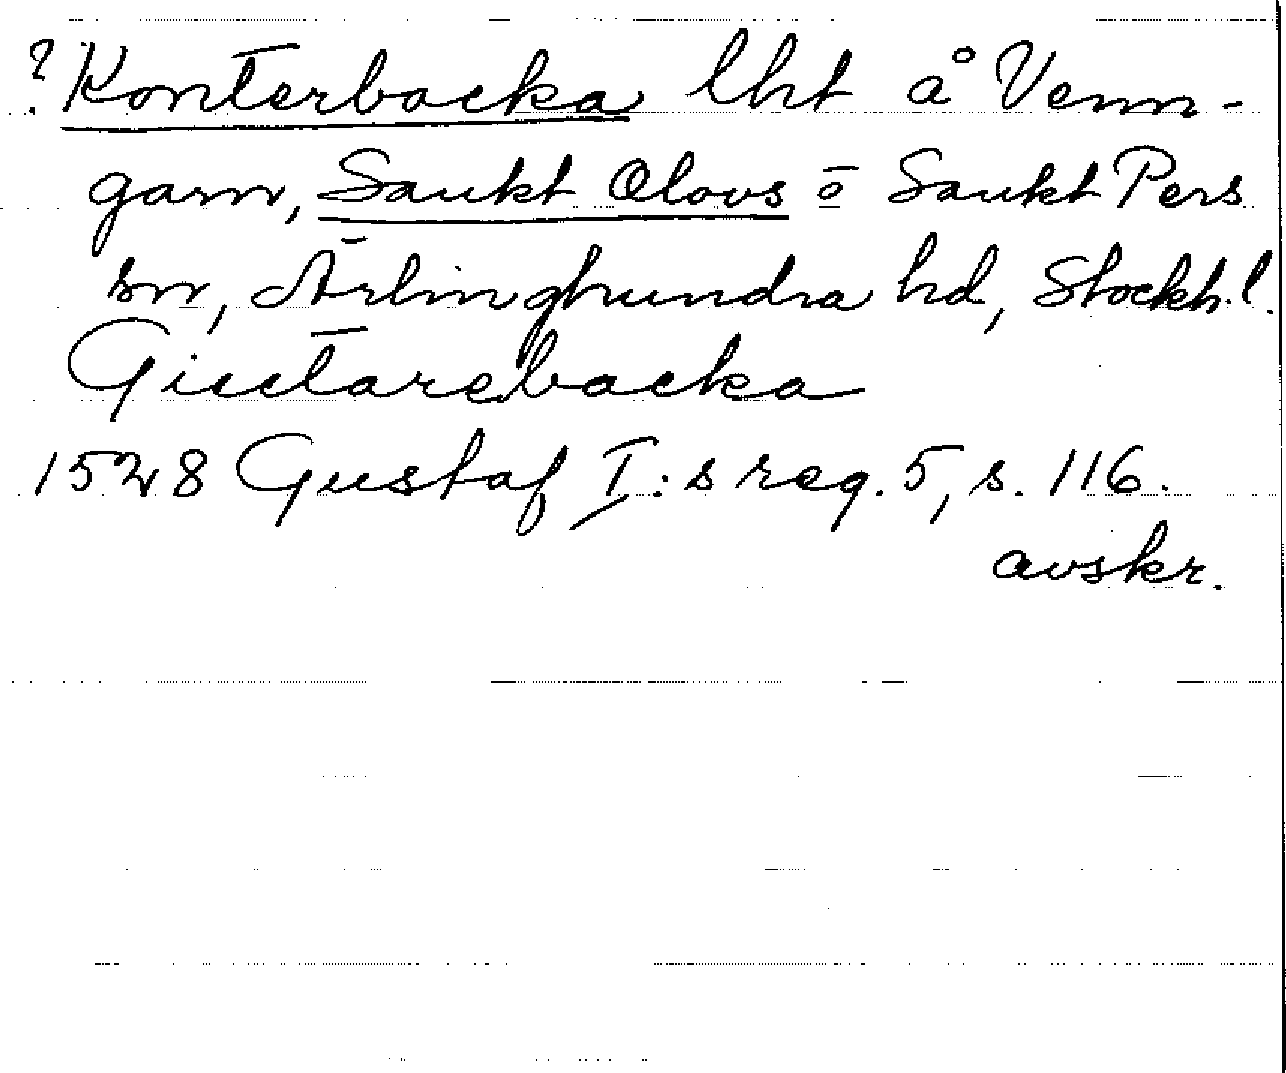 ? Konterbacka lht å Venn-
garn, Sankt Olovs o Sankt Pers
sn, Ärlinghundra hd, Stockh. l.
Giutarebacka
1528 Gustaf I:s reg. 5, s. 116.
avskr.